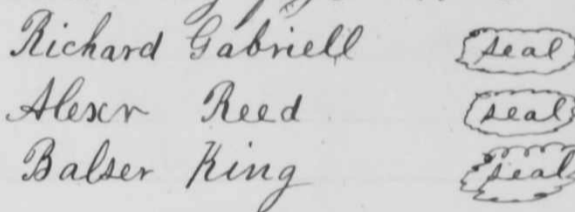 Richard Gabriell seal
Alexr Reed seal
Balser King seal